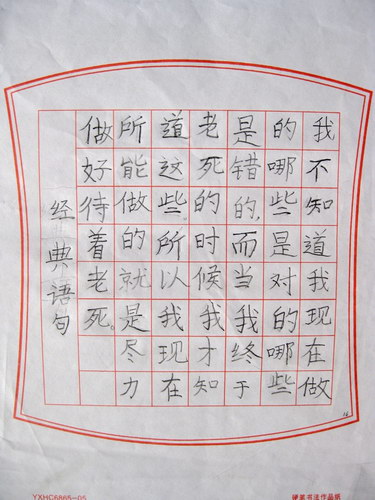 我不知道我现在做
的哪些是对的哪些
是错的,而当我终于
老死的时候我才知
道这些。所以我现在
所能做的就是尽力
做好待着老死。
经典语句
YXHC6865-05
硬笔书法作品纸